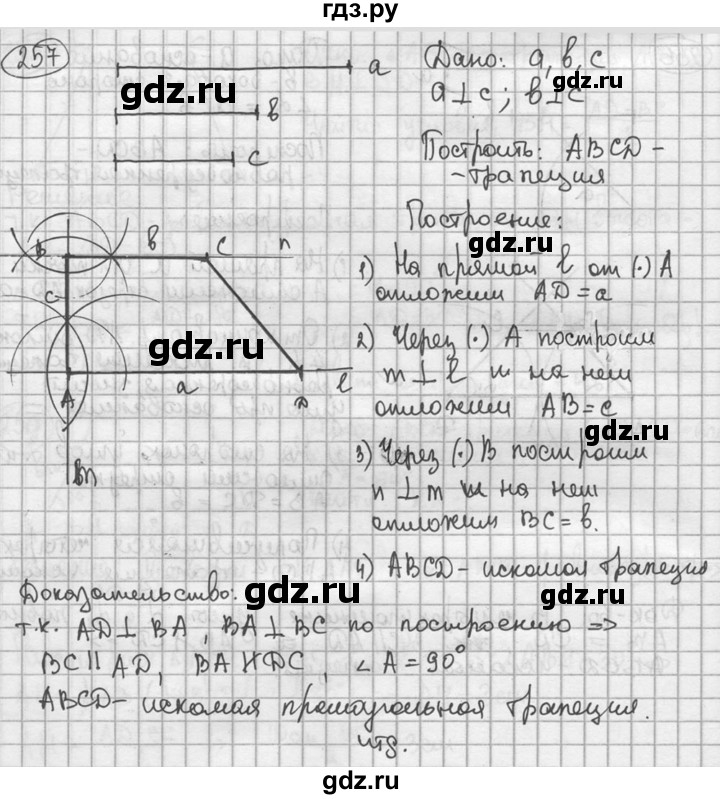 гдз.ру
257
a
b
c
gdz.ru
Дано: a, b, c
a⊥c; b⊥c
gdz.ru
Построить: ABCD -
- трапеция
Построение:
1) На прямой l от (·) A
отложим AD = a
2) Через (·) A построим
m ⊥ l и на нём
отложим AB = c
gdz.ru
3) Через (·) B построим
n ⊥ m и на нем
отложим BC = b.
4) ABCD - искомая трапеция
B
b
C
n
c
gdz.ru
A
a
D
l
m
Доказательство:
т.к. AD ⊥ BA, BA ⊥ BC по построению =>
BC || AD, BA ∦ DC, ∠A = 90°
ABCD - искомая прямоугольная трапеция.
чтд.
gdz.ru